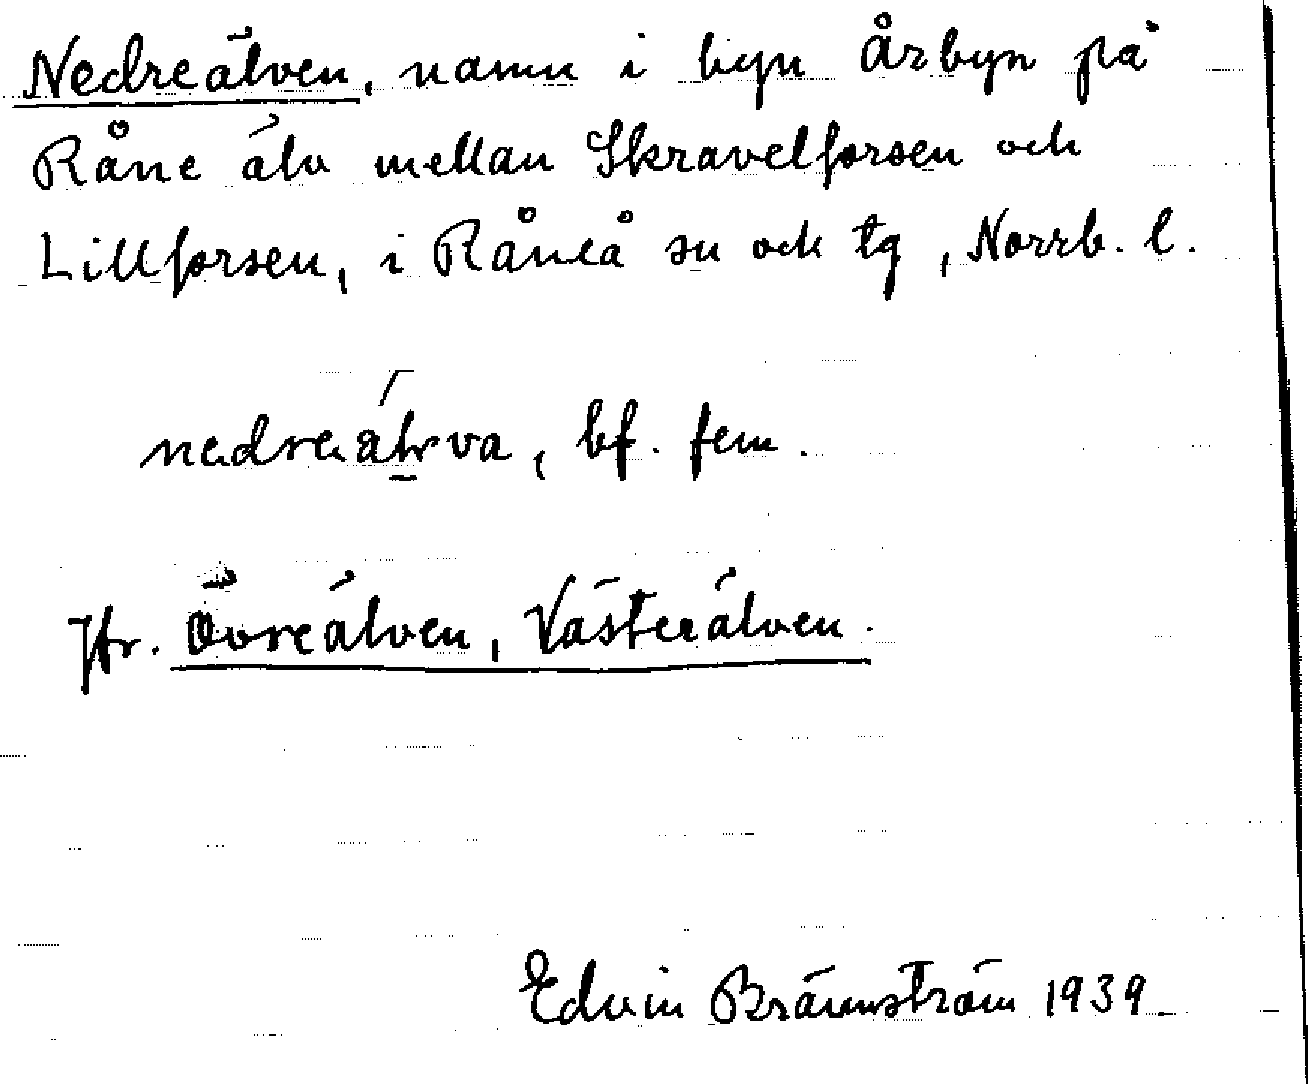 Nedreälven, namn i byn Årbyn på
Råne älv mellan Skravelforsen och
Lillforsen, i Råneå sn och tg, Norrb. l.
nedreälva, bf. fem.
Jfr. Övreälven, Västerälven.
Edvin Brännström 1939